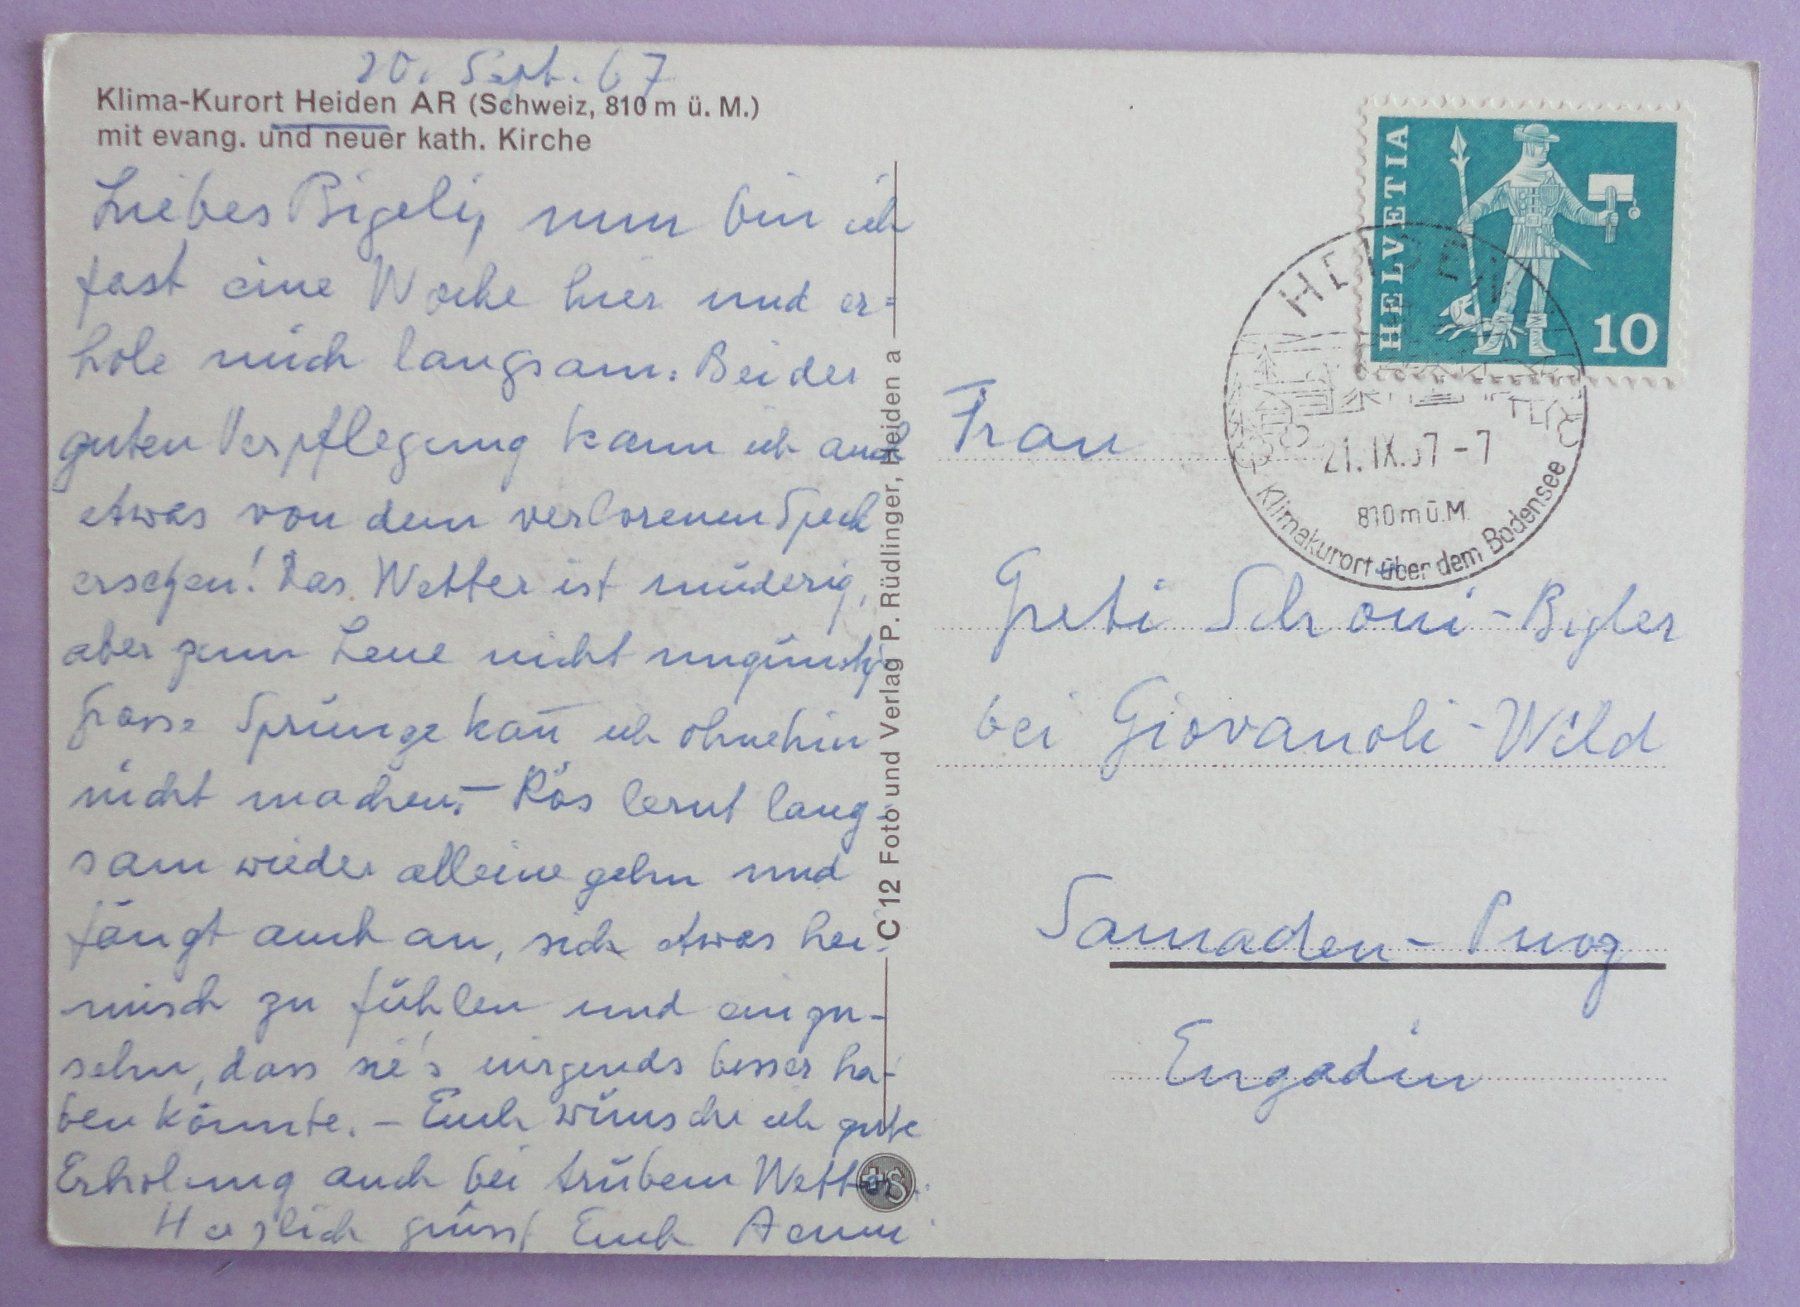 20. Sept. 67
Klima-Kurort Heiden AR (Schweiz, 810 m ü. M.)
mit evang. und neuer kath. Kirche
Liebes Bigeli, nun bin ich
fast eine Woche hier und er=
hole mich langsam. Bei der
guten Verpflegung kann ich auch
etwas von dem verlorenen Speck
ersetzen! Das Wetter ist
aber zum nicht ungünstig
Grosse Sprünge kann ich ohnehin
nicht machen. – Rös lernt lang-
sam wieder alleine gehn und
fängt auch an, sich etwas hei-
misch zu fühlen und einzu-
sehn, dass sie's nirgends besser ha-
ben könnte. – Euch wünsche ich gute
Erholung auch bei trübem Wetter.
Herzlich grüsst Euch Aenni
C 12 Foto und Verlag P. Rüdlinger, Heiden a
HELVETIA
10
HEIDEN
21. IX. 67 - 7
810 m ü. M.
Klimakurort über dem Bodensee
Frau
Greti Schoni-Bigler
bei Giovanoli-Wild
Samaden-
Engadin